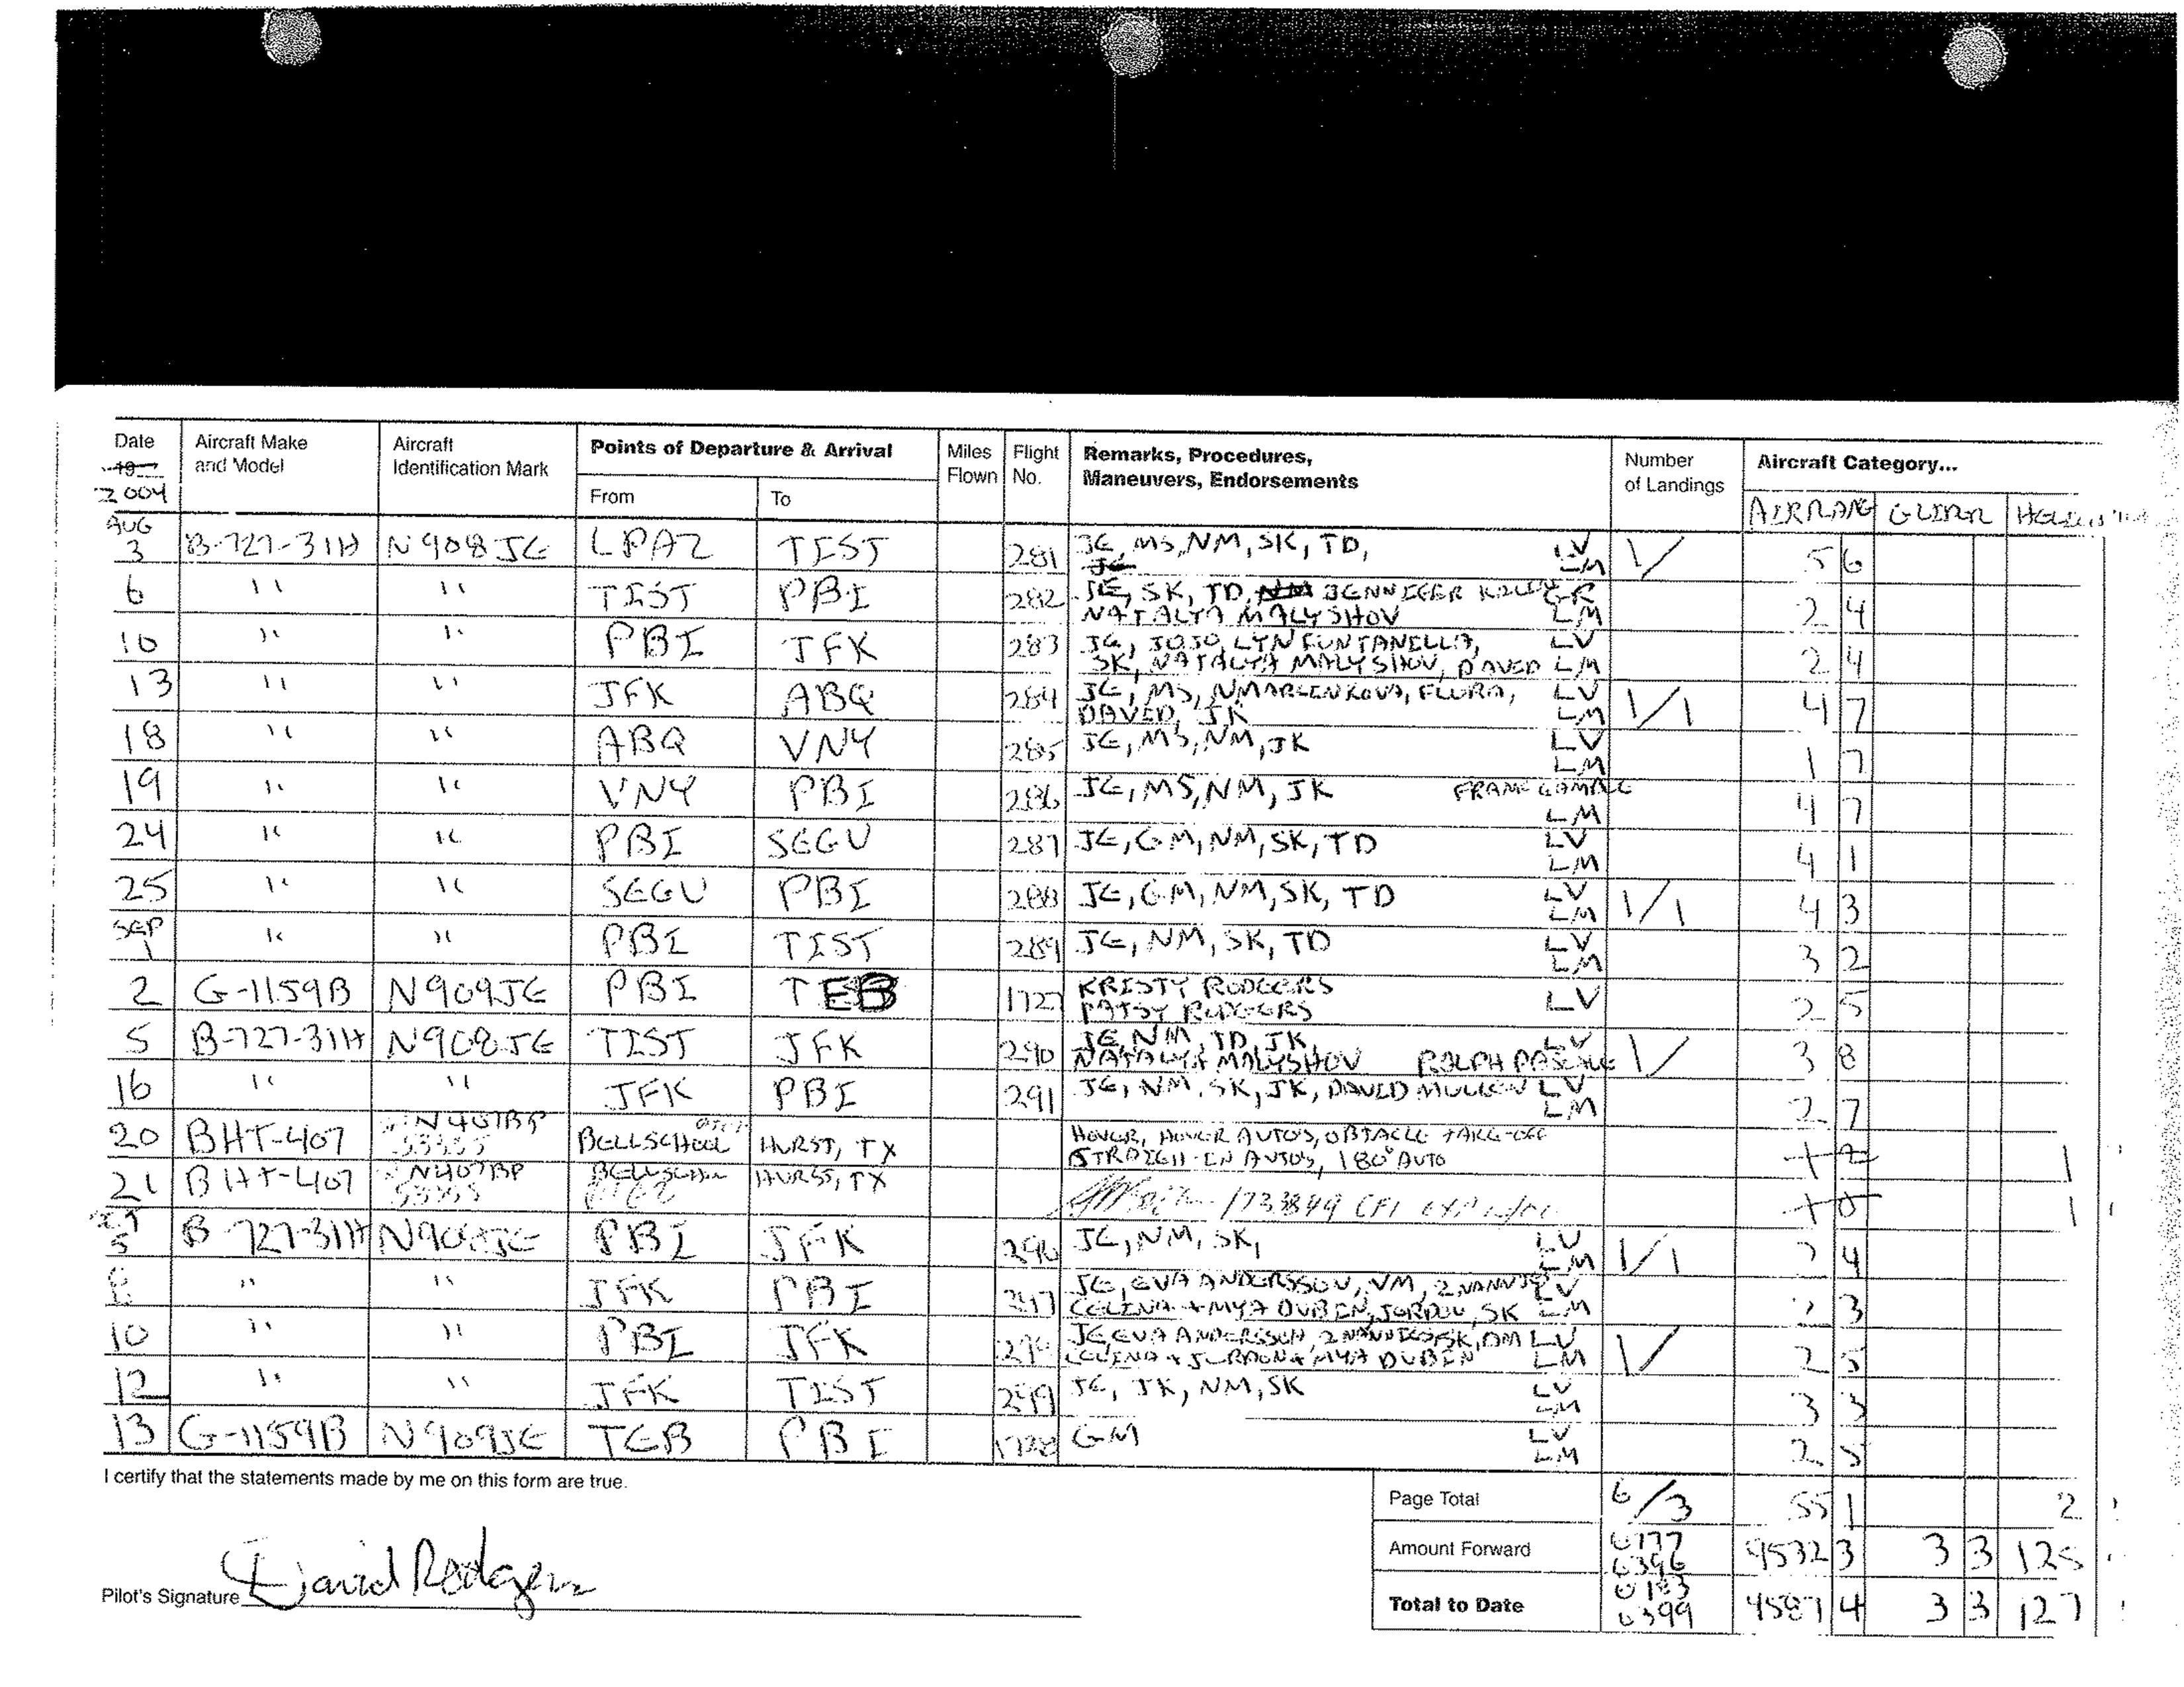 Date Aircraft Make Aircraft Points of Departure & Arrival Miles Flight Remarks, Procedures, Number Aircraft Category...
19 and Model Identification Mark Flown No. Maneuvers, Endorsements of Landings
2004 From To AIRPLANE GLIDER
AUG
3 B-727-31H N908JE LPAZ TIST 281 JE, MS, NM, SK, TD, LV 1/ 5 6
JE LM
6 " " TIST PBI 282 JE, SK, TD, NM JENNIFER GR 2 4
NATALYA MALYSHOV LM
10 " " PBI JFK 283 JE, JOJO, LYN FONTANELLA, LV 2 4
SK, NATALYA MALYSHOV, DAVID LM
13 " " JFK ABQ 284 JE, MS, NMARCENKOVA, FLORA, LV 1/1 4 7
DAVID, JK LM
18 " " ABQ VNY 285 JE, MS, NM, JK LV 1 7
LM
19 " " VNY PBI 286 JE, MS, NM, JK FRANK GAMBLE 4 7
LM
24 " " PBI SEGU 287 JE, GM, NM, SK, TD LV 4 1
LM
25 " " SEGU PBI 288 JE, GM, NM, SK, TD LV 1/1 4 3
LM
SEP
1 " " PBI TIST 289 JE, NM, SK, TD LV 3 2
LM
2 G-1159B N909JE PBI TEB 1727 KRISTY RODGERS LV 2 5
PATSY RODGERS
5 B-727-31H N908JE TIST JFK 290 JE, NM, TD, JK, LV 1/ 3 8
NATALYA MALYSHOV RALPH PASCALE
16 " " JFK PBI 291 JE, NM, SK, JK, DAVID MULLEN LV 2 7
LM
20 BHT-407 N407BP BELLSCHOOL HURST, TX HOVER, HOVER AUTOS, OBTACLE TAKE-OFF 1
53355 STRAIGH-IN AUTOS, 180° AUTO
21 BHT-407 N407BP HURST, TX 1733849 CFI EXP 1
5 B-727-31H N908JE PBI JFK 296 JE, NM, SK, LV 1/1 2 4
LM
" " JFK PBI 297 JE, EVA ANDERSSON, VM, 2 NANNIES LV 2 3
CELINA + MYA DUBIN, JORDON, SK LM
10 " " PBI JFK JE EVA ANDERSSON, 2 NANNIES, SK, DM LV 1/ 2 5
CELINA + JORDON + MYA DUBIN LM
12 " " JFK TIST 299 JE, JK, NM, SK LV 3 3
LM
13 G-1159B N909JE TEB PBI 1728 GM LV 2 5
LM
I certify that the statements made by me on this form are true.
Page Total 6/3 55 1 2
Amount Forward 6396 9532 3 3 3 125
Pilot's Signature David Rodgers
Total to Date 6399 9587 4 3 3 127